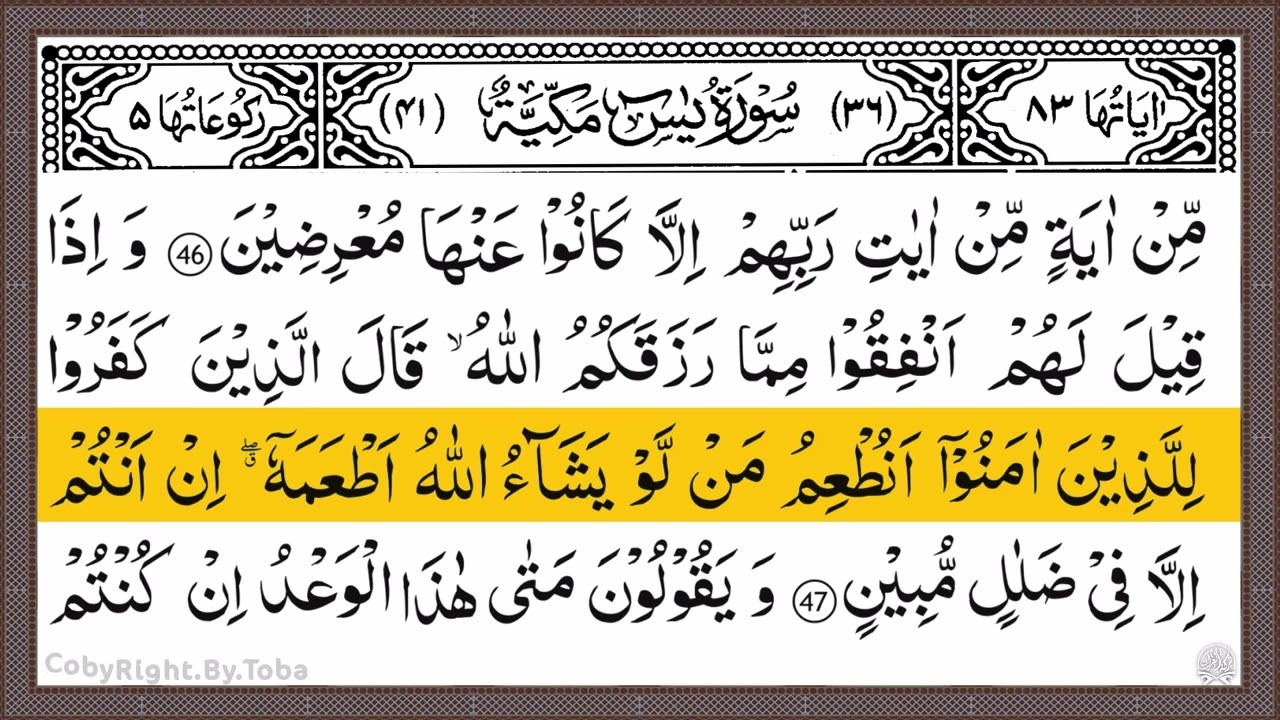 اٰيَاتُهَا ٨٣ (٣٦) سُوْرَةُ يٰسٓ مَكِّيَّةٌ (٤١) رُكُوْعَاتُهَا ٥
مِّنْ اٰيَةٍ مِّنْ اٰيٰتِ رَبِّهِمْ اِلَّا كَانُوْا عَنْهَا مُعْرِضِيْنَ 46 وَ اِذَا
قِيْلَ لَهُمْ اَنْفِقُوْا مِمَّا رَزَقَكُمُ اللّٰهُ ۙ قَالَ الَّذِيْنَ كَفَرُوْا
لِلَّذِيْنَ اٰمَنُوْۤا اَنُطْعِمُ مَنْ لَّوْ يَشَآءُ اللّٰهُ اَطْعَمَهٗۤ ۖۗ اِنْ اَنْتُمْ
اِلَّا فِيْ ضَلٰلٍ مُّبِيْنٍ 47 وَ يَقُوْلُوْنَ مَتٰى هٰذَا الْوَعْدُ اِنْ كُنْتُمْ
CobyRight.By.Toba